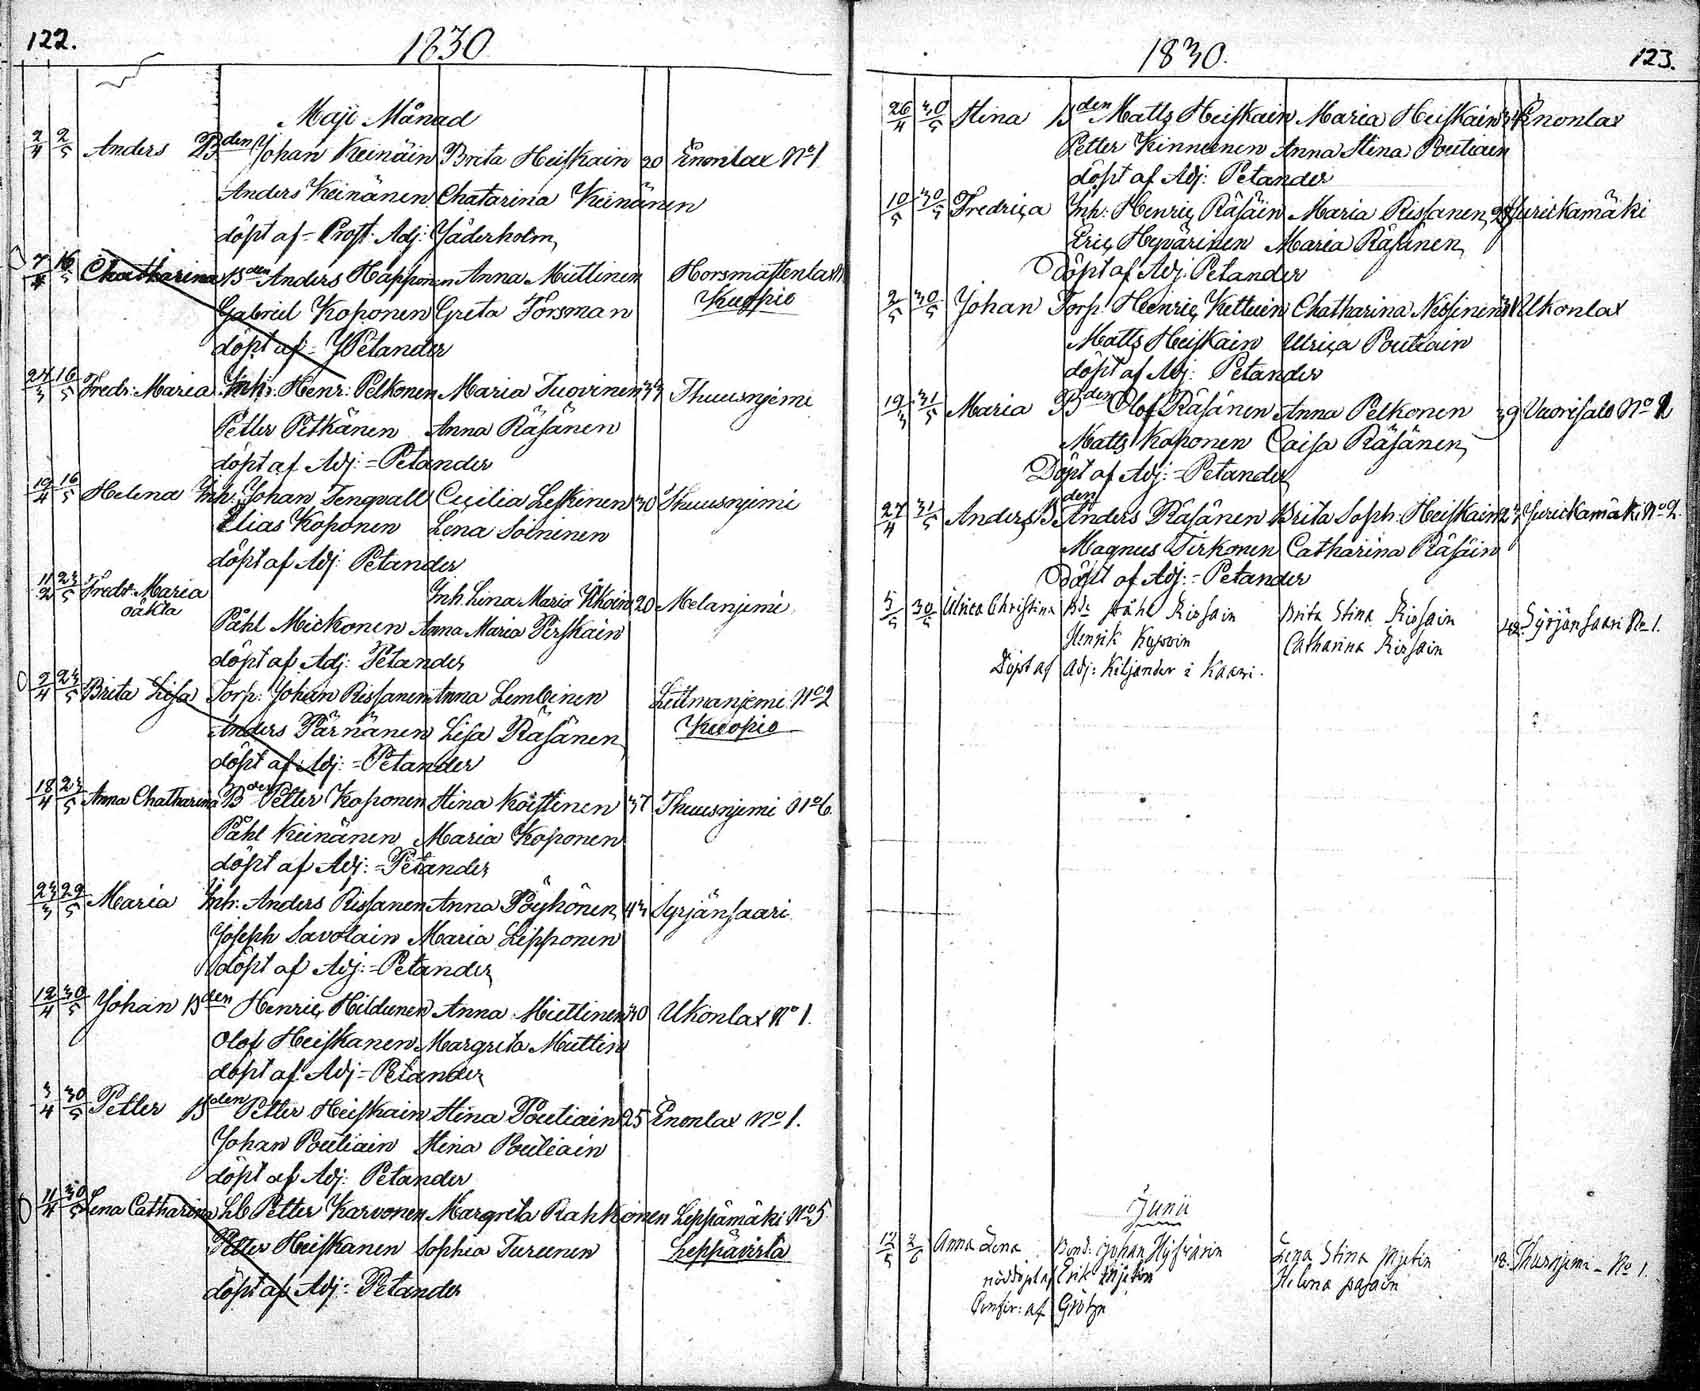 122.
1830
Maji Månad
2/4 2/5 Anders Bden Johan Keinäin Brita Heiskain 20 Enonlax No 1
Anders Keinänen Chatarina Keinänen
döpt af Adj: Jäderholm
7/4 16/5 Chatharina Bden Anders Happonen Anna Miettinen Horsmastenlax
Gabriel Koponen Greta Forsman Kuopio
döpt af Petander
24/3 16/5 Fredr: Maria Inh: Henr: Pelkonen Maria Tuovinen 33 Thuusnjemi
Petter Pitkänen Anna Räsänen
döpt af Adj:=Petander
19/4 16/5 Helena Inh: Johan Tengvall Cecilia Leskinen 30 Thuusnjemi
Elias Koponen Lena Soininen
döpt af Adj: Petander
11/2 23/5 Fredr Maria Inh. Lina Maria 20 Melanjemi
oäkta Påhl Mickonen Anna Maria Pirskain
döpt af Adj: Petander
2/4 23/5 Brita Lisa Torp: Johan Rissanen Anna Lembinen Litmanjemi No 2
Anders Pärnänen Lisa Räsänen Kuopio
döpt af Adj:=Petander
18/4 23/5 Anna Chatharina Bden Petter Koponen Stina Koistinen 37 Thuusnjemi No 6.
Påhl Keinänen Maria Koponen
döpt af Adj:=Petander
23/3 29/5 Maria Inh: Anders Rissanen Anna Pöyhönen 43 Syrjänsaari.
Joseph Savolain Maria Lipponen
döpt af Adj:=Petander
12/4 30/5 Johan Bden Henric Hildunen Anna Miettinen 30 Ukonlax No 1.
Olof Heiskanen Margreta Miettin
döpt af Adj=Petander
3/4 30/5 Petter Bden Petter Heiskain Stina Poutiain 25 Enonlax No 1.
Johan Poutiain Stina Poutiain
döpt af Adj: Petander
11/4 30/5 Lena Catharina Lb Petter Karvonen Margreta Rahkonen Leppämäki No 5.
Petter Heiskanen Sophia Turunen Leppävirta
döpt af Adj: Petander
1830.
123.
26/4 30/5 Stina Bden Matts Heiskain Maria Heiskain 34 Enonlax
Petter Kinnunen Anna Stina Poutiain
döpt af Adj: Petander
10/5 30/5 Fredrica Inh: Henric Räsäin Maria Rissanen Jurickamäki
Eric Hyvärinen Maria Räsänen
Döpt af Adj: Petander
2/5 30/5 Johan Torp: Heinric Kettuin Chatharina Nousinen 31 Ukonlax
Matts Heiskain Ulrica Poutiain
döpt af Adj: Petander
19/3 31/5 Maria Bden Olof Räsänen Anna Pelkonen 39 Vuorisalo No 2
Matts Koponen Caisa Räsänen
Döpt af Adj:=Petander
27/4 31/5 Anders Bden Anders Räsänen Brita Soph: Heiskain 23 Jurickamäki No 2.
Magnus Tirkonen Catharina Räsäin
Döpt af Adj:=Petander
5/5 30/5 Ulrica Christina Bde Påhl Rissain Brita Stina Rissain 42 Syrjänsaari No 1.
Henrik Catharina Rissain
Döpt af Adj: Kiljander i Kaavi.
Junii
12/5 2/6 Anna Lena Bond: Johan Hyfvärin Lena Stina Mjetin 18. Thusnjemi No 1.
nöddöpt af Erik Mjetin Helena
Confir: af